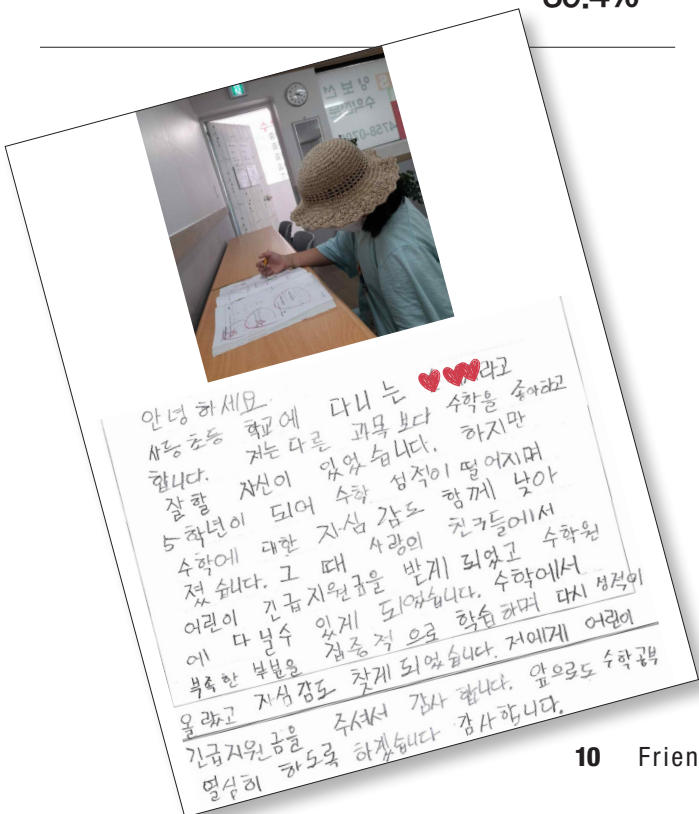 안녕하세요.
사등초등 학교에 다니는 라고
합니다. 저는 다른 과목 보다 수학을 좋아하고
잘할 자신이 있었습니다. 하지만
5학년이 되어 수학 성적이 떨어지며
수학에 대한 자심감도 함께 낮아
졌습니다. 그 때 사랑의 친구들에서
어린이 긴급지원금을 받게 되었고 수학원
에 다닐수 있게 되었습니다. 수학에서
부족한 부분을 집중적 으로 학습하며 다시 성적이
올랐고 자심감도 찾게 되었습니다. 저에게 어린이
긴급지원금을 주셔서 감사 합니다. 앞으로도 수학공부
열심히 하도록 하겠습니다 감사합니다.
10 Frien